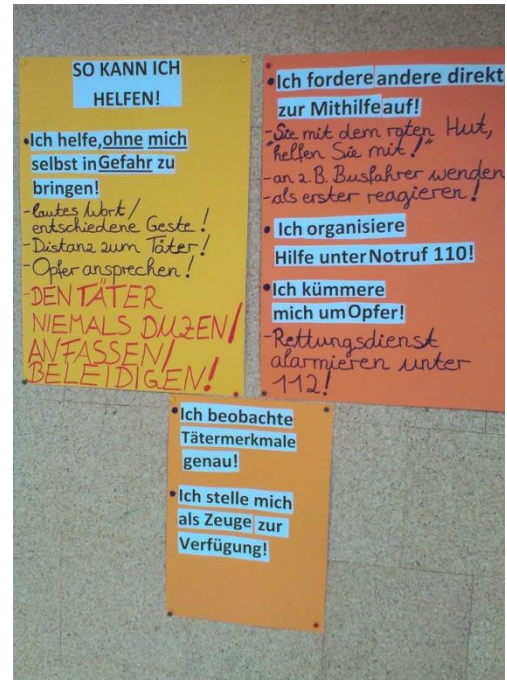 SO KANN ICH
HELFEN!
•Ich helfe, ohne mich
selbst in Gefahr zu
bringen!
-lautes Wort/
entschiedene Geste!
-Distanz zum Täter!
-Opfer ansprechen!
-DEN TÄTER
NIEMALS DUZEN/
ANFASSEN/
BELEIDIGEN!
•Ich fordere andere direkt
zur Mithilfe auf!
-Sie mit dem roten Hut,
"helfen Sie mit!"
-an z.B. Busfahrer wenden
-als erster reagieren!
• Ich organisiere
Hilfe unter Notruf 110!
•Ich kümmere
mich um Opfer!
-Rettungsdienst
alarmieren unter
112!
• Ich beobachte
Tätermerkmale
genau!
• Ich stelle mich
als Zeuge zur
Verfügung!